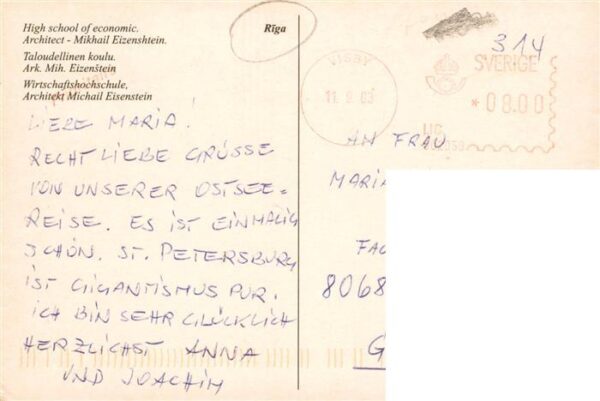 High school of economic.
Architect - Mikhail Eizenshtein.
Taloudellinen koulu.
Ark. Mih. Eizenštein
Wirtschaftshochschule,
Architekt Michail Eisenstein
Rīga
LIEBE MARIA!
RECHT LIEBE GRÜSSE
VON UNSERER OSTSEE=
REISE. ES IST EINMALIG
SCHÖN. ST. PETERSBURG
IST GIGANTISMUS PUR.
ICH BIN SEHR GLÜCKLICH
HERZLICHST ANNA
UND JOACHIM
314
VISBY
11.9.03
SVERIGE
*08.00
AN FRAU
MARIA
FAC
8068
G